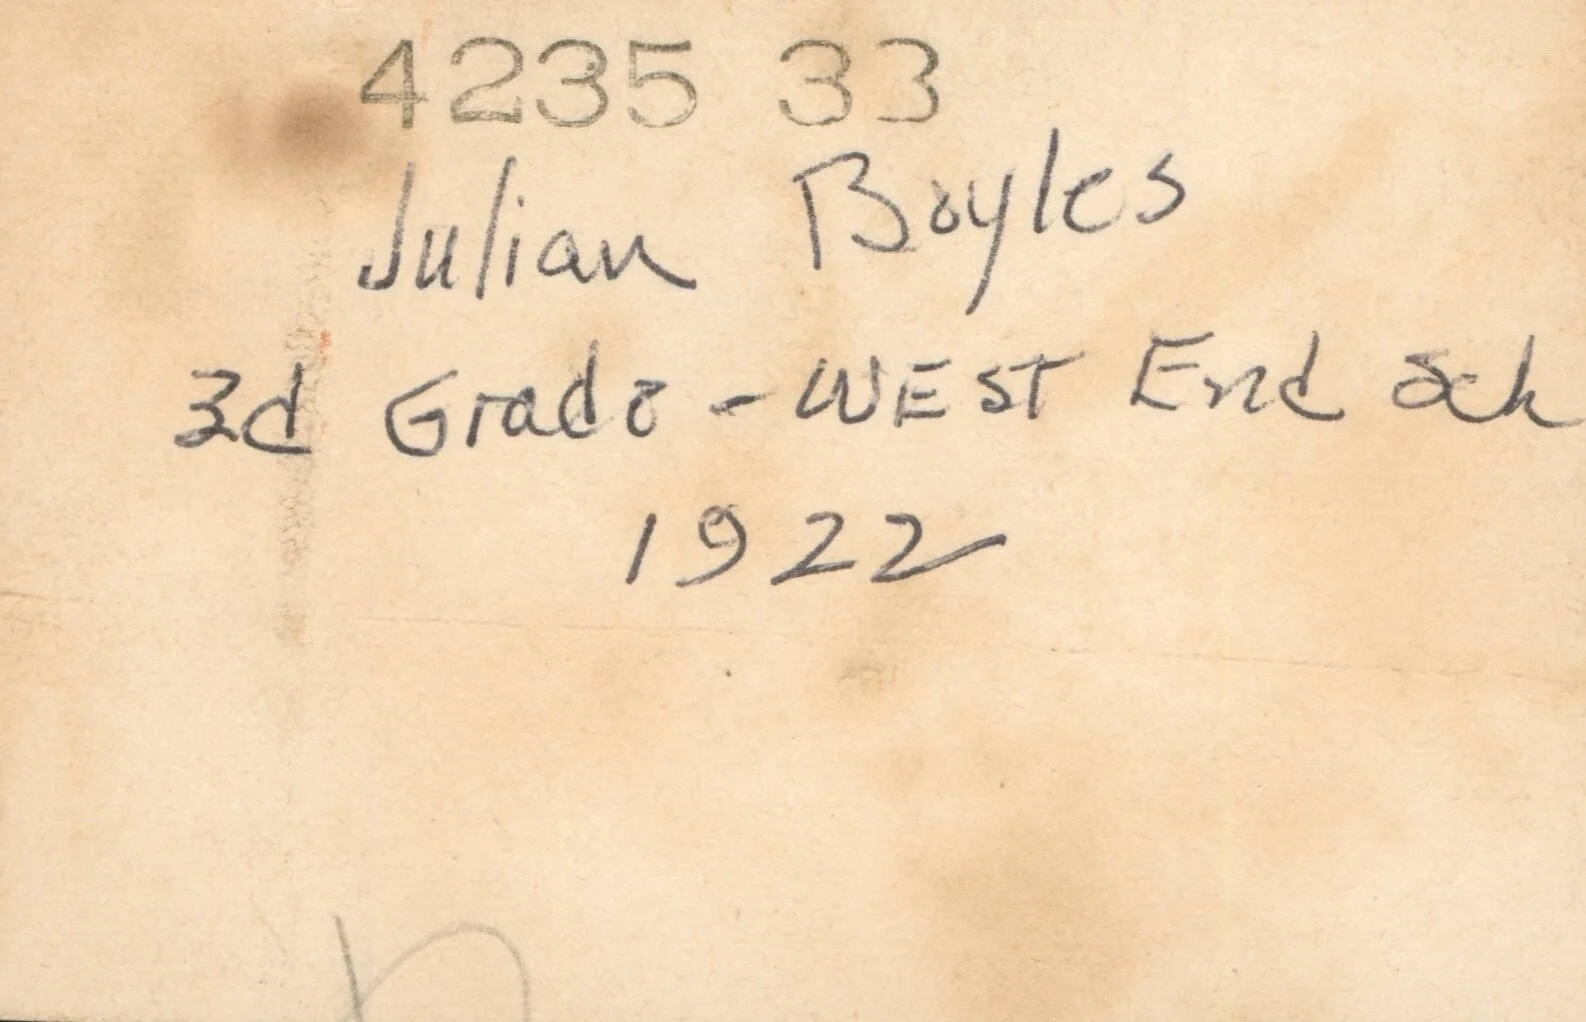 4235 33
Julian Boyles
3d Grade - WEST End Sch
1922